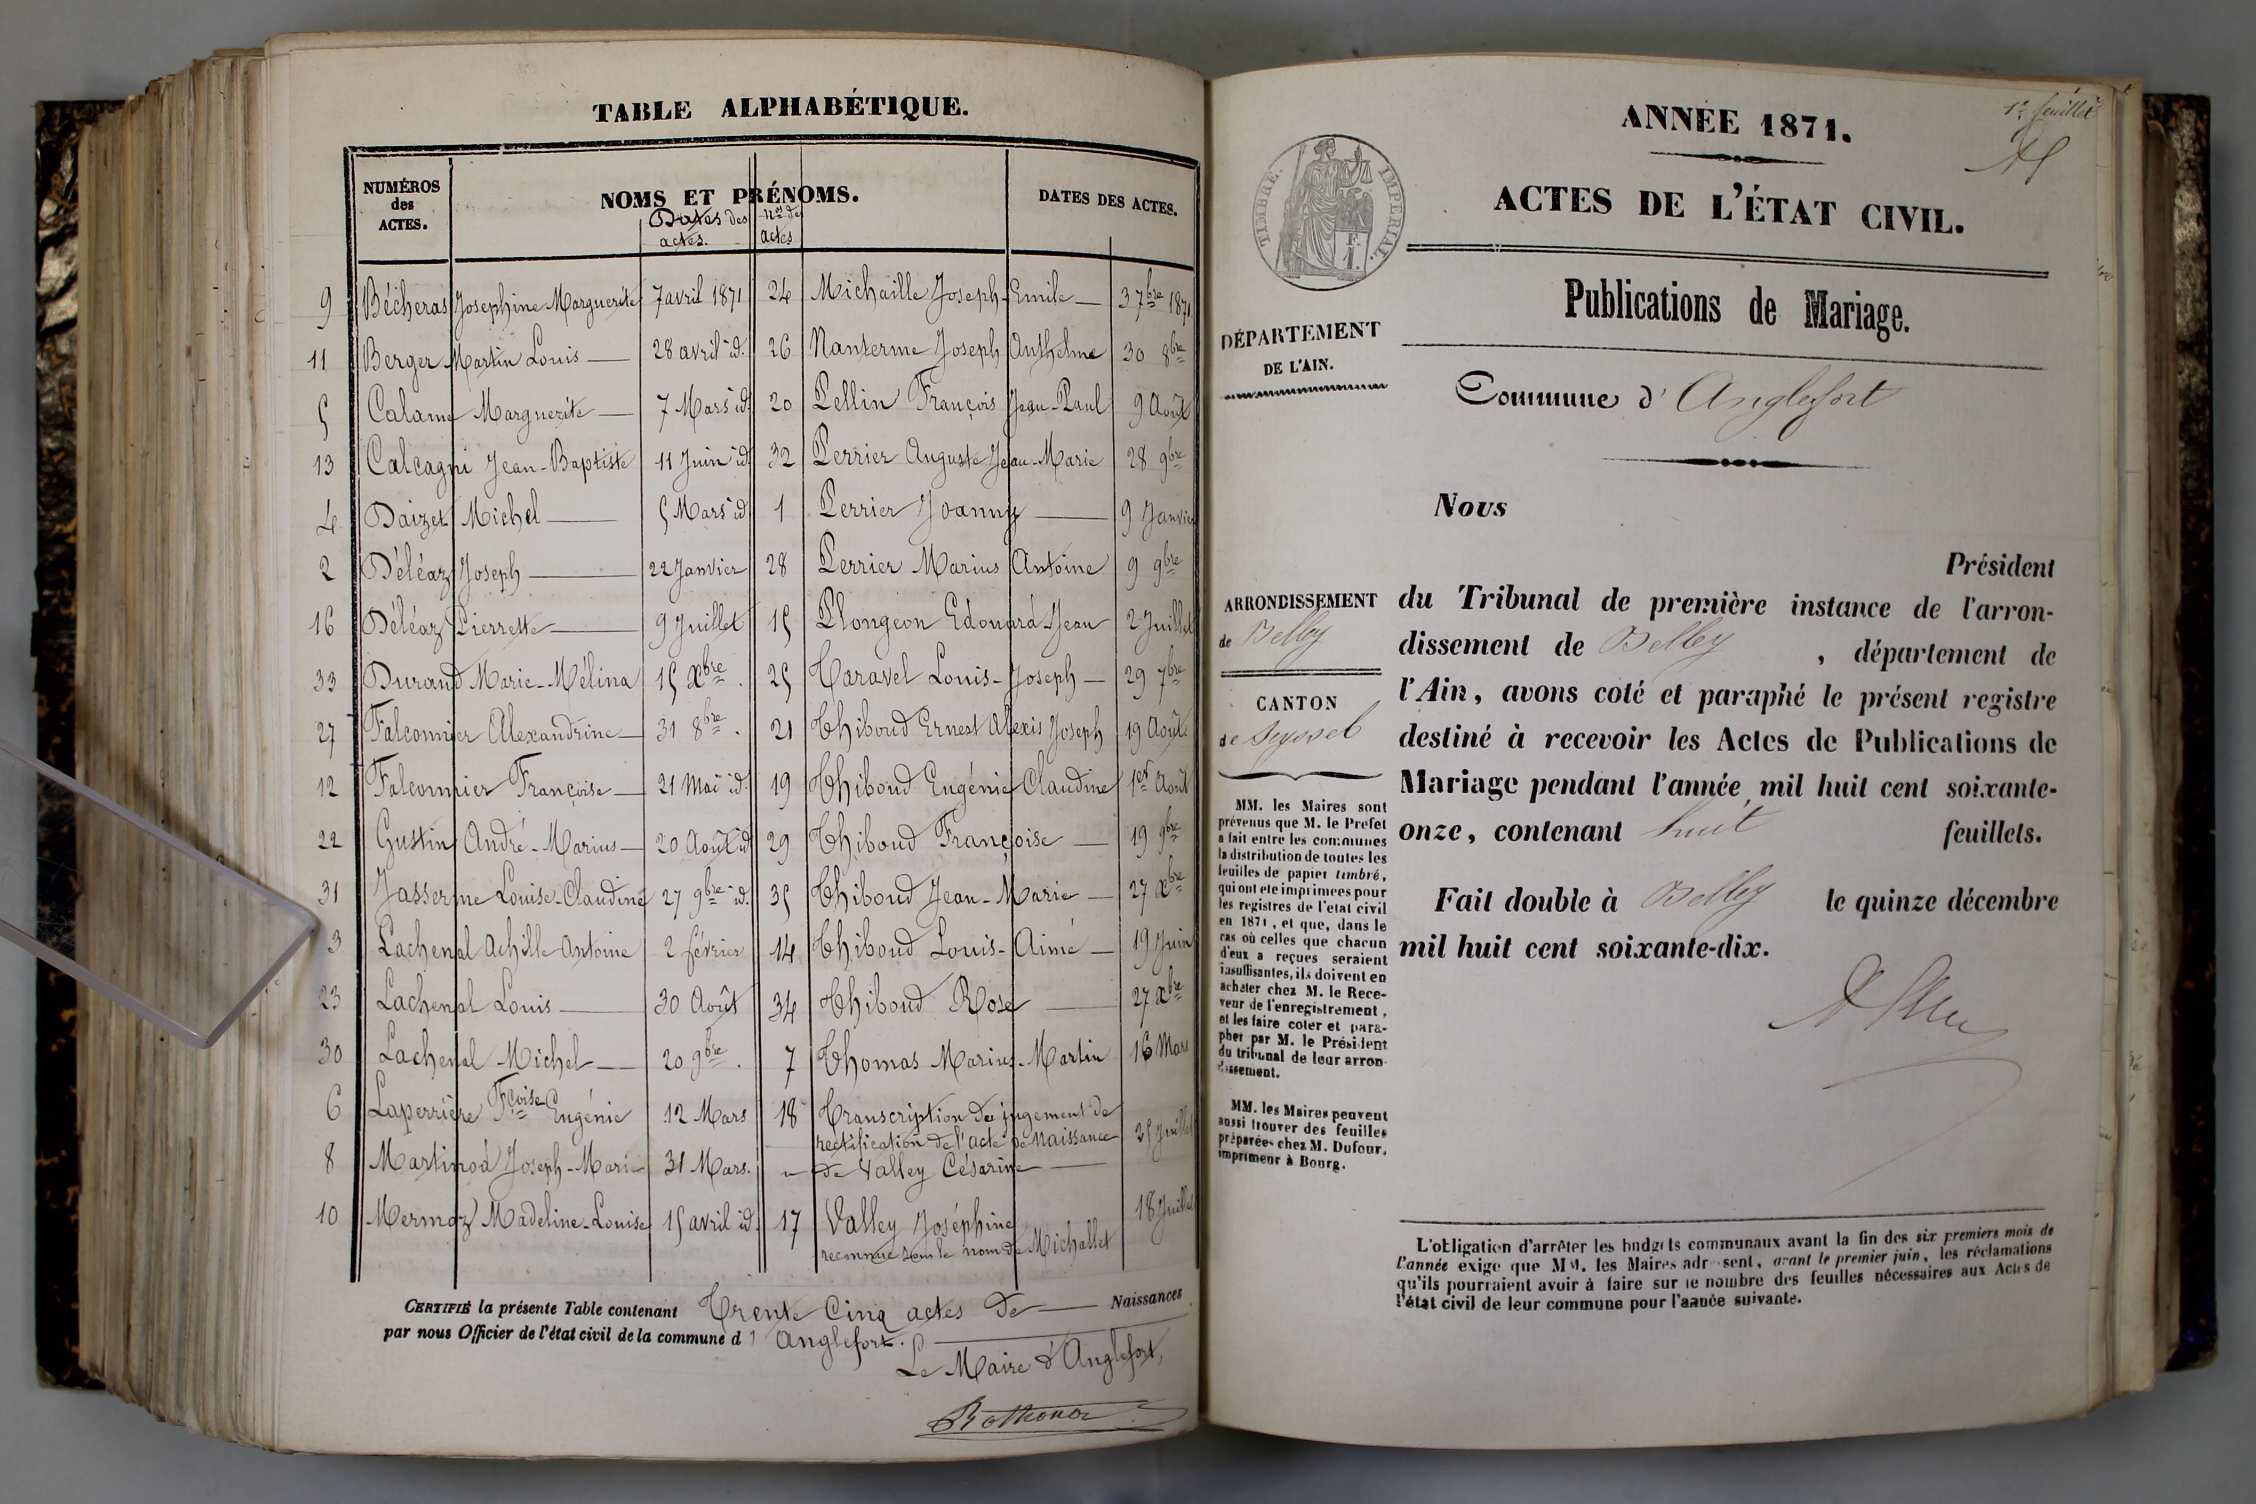 TABLE ALPHABÉTIQUE.
NUMÉROS des ACTES.
NOMS ET PRÉNOMS.
Dates des actes.
Nos de actes
DATES DES ACTES.
9 Bécheras Josephine Marguerite 7 avril 1871
11 Berger Martin Louis 28 avril id.
5 Calame Marguerite 7 Mars id.
13 Calcagni Jean-Baptiste 11 Juin id.
4 Daizet Michel 5 Mars id
2 Déléaz Joseph 22 Janvier
16 Déléaz Pierrette 9 Juillet
33 Durand Marie-Mélina 15 Xbre.
27 Falconnier Alexandrine 31 8bre.
12 Falconnier Françoise 21 Mai id.
22 Gustin André-Marius 20 Août id
31 Jasserme Louise-Claudine 27 9bre id.
3 Lachenal Achille Antoine 2 février
23 Lachenal Louis 30 Août
30 Lachenal Michel 20 9bre.
6 Laperrière Fçoise Eugénie 12 Mars
8 Martinod Joseph-Marie 31 Mars.
10 Mermoz Madeline-Louise 15 avril id.
24 Michaille Joseph-Emile 3 7bre 1871
26 Nanterme Joseph Anthelme 30 8bre
20 Pellin François Jean-Paul 9 Août
32 Perrier Auguste Jean-Marie 28 9bre
1 Perrier Joanny 9 Janvier
28 Perrier Marius Antoine 9 9bre
15 Plongeon Edouard Jean 2 Juillet
25 Taravel Louis-Joseph 29 7bre
21 Thiboud Ernest Alexis Joseph 19 Août
19 Thiboud Eugénie Claudine 1er Août
29 Thiboud Françoise 19 9bre
35 Thiboud Jean-Marie 27 Xbre
14 Thiboud Louis-Aimé 19 Juin
34 Thiboud Rose 27 Xbre
7 Thomas Marius-Martin 16 Mars
18 Transcription de jugement de
rectification de l'acte de naissance 25 Juillet
de Valley Césarine
17 Valley Joséphine 18 Juillet
reconnue sous le nom de Michallet
CERTIFIÉ la présente Table contenant Trente Cinq actes de Naissances
par nous Officier de l'état civil de la commune d'Anglefort.
Le Maire d'Anglefort,
1er feuillet
ANNÉE 1871.
ACTES DE L'ÉTAT CIVIL.
TIMBRE IMPÉRIAL.
F.
1.
Publications de Mariage.
DÉPARTEMENT
DE L'AIN.
Commune d'Anglefort
Nous
Président
du Tribunal de première instance de l'arron-
dissement de Belley, département de
l'Ain, avons coté et paraphé le présent registre
destiné à recevoir les Actes de Publications de
Mariage pendant l'année mil huit cent soixante-
onze, contenant huit feuillets.
Fait double à Belley le quinze décembre
mil huit cent soixante-dix.
ARRONDISSEMENT
de Belley
CANTON
de Seyssel
MM. les Maires sont
prévenus que M. le Prefet
a fait entre les communes
la distribution de toutes les
feuilles de papier timbré,
qui ont été imprimées pour
les registres de l'etat civil
en 1871, et que, dans le
cas où celles que chacun
d'eux a reçues seraient
insuffisantes, ils doivent en
acheter chez M. le Rece-
veur de l'enregistrement,
et les faire coter et para-
pher par M. le Président
du tribunal de leur arron-
dissement.
MM. les Maires peuvent
aussi trouver des feuilles
préparées chez M. Dufour,
imprimeur à Bourg.
L'obligation d'arrêter les budgets communaux avant la fin des six premiers mois de
l'année exige que MM. les Maires adressent, avant le premier juin, les réclamations
qu'ils pourraient avoir à faire sur le nombre des feuilles nécessaires aux Actes de
l'état civil de leur commune pour l'année suivante.